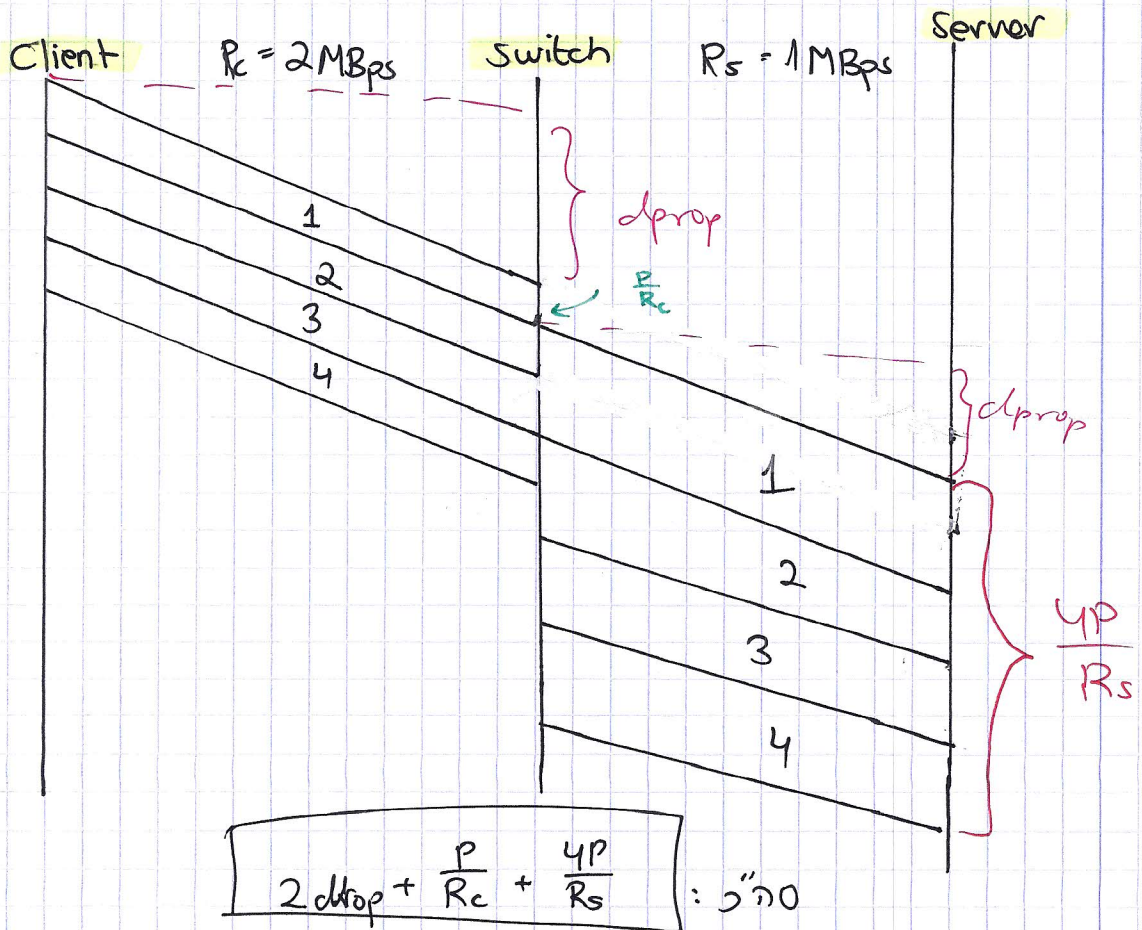 Client Rc = 2MBps Switch Rs = 1MBps Server
dprop
P/Rc
dprop
1
2
3
4
1
2
3
4
4P/Rs
סה"כ: 2dprop + P/Rc + 4P/Rs